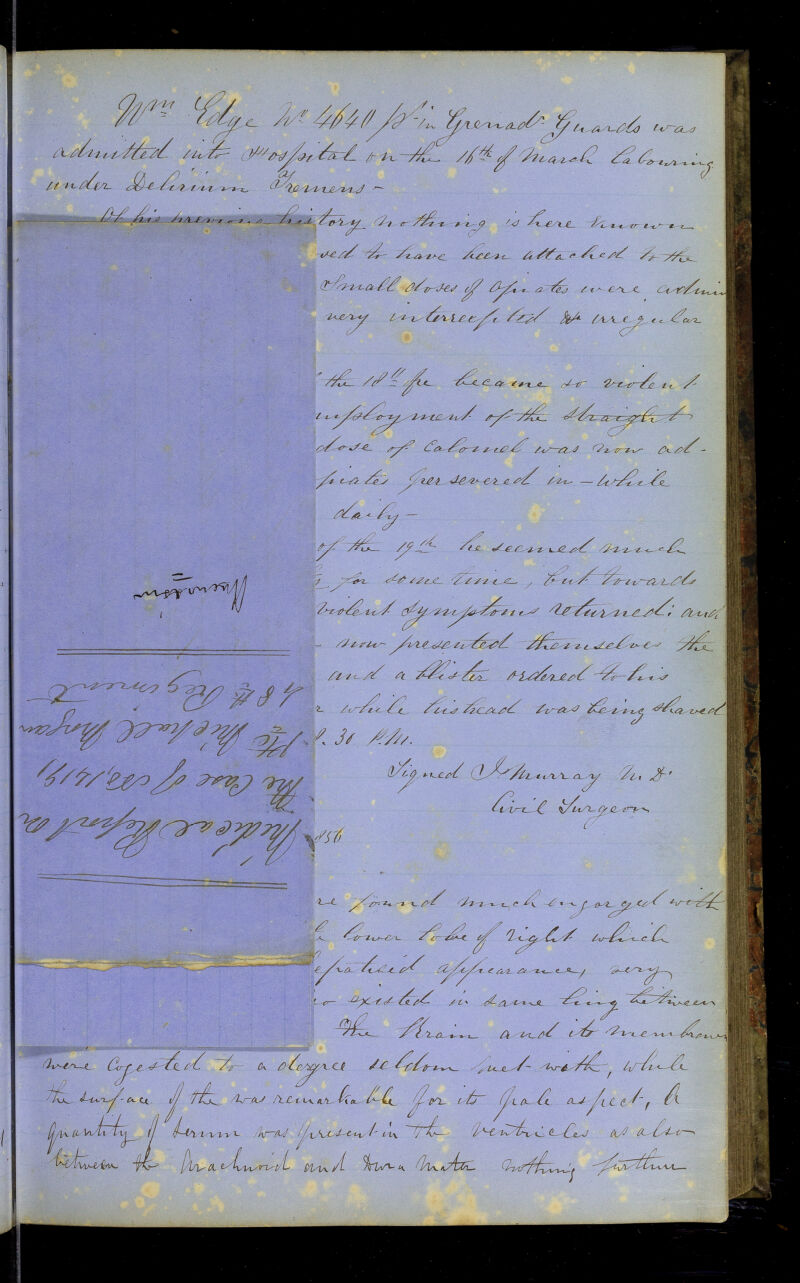 Wm Edge No 4640 pt in Grenadr Guards was
admitted into Hospital on the 16th of March labouring
under Delirium Tremens -
Of his previous history nothing is here known
sed to have been attached to the
Small doses of opiates were admin
very interrcepited & irregular
the 18th he became so violent
mployment of the straight
dose of Calomel was now ad-
piates persevered in - while
daily -
of the 19th he seemed much
for some time, but towards
violent symptoms returned: and
now presented themselves the
and a blister ordered to his
while his head was being shaved
30 P.M.
Signed Js Murray M D.
Civil Surgeon
856
re found much engorged with
lower lobe of right which
epaticid appearance, very
so existed in same ling between
The Brain and its membranes
were cogested to a degree seldom met with, while
the surface of the was remarkable for its pale aspect, A
quantity of serum was present in the ventricles as also
between the Arachnoid and Dura Mater nothing further
Medical Report on
the Case of
Pte Michael Morgan
48th Regiment